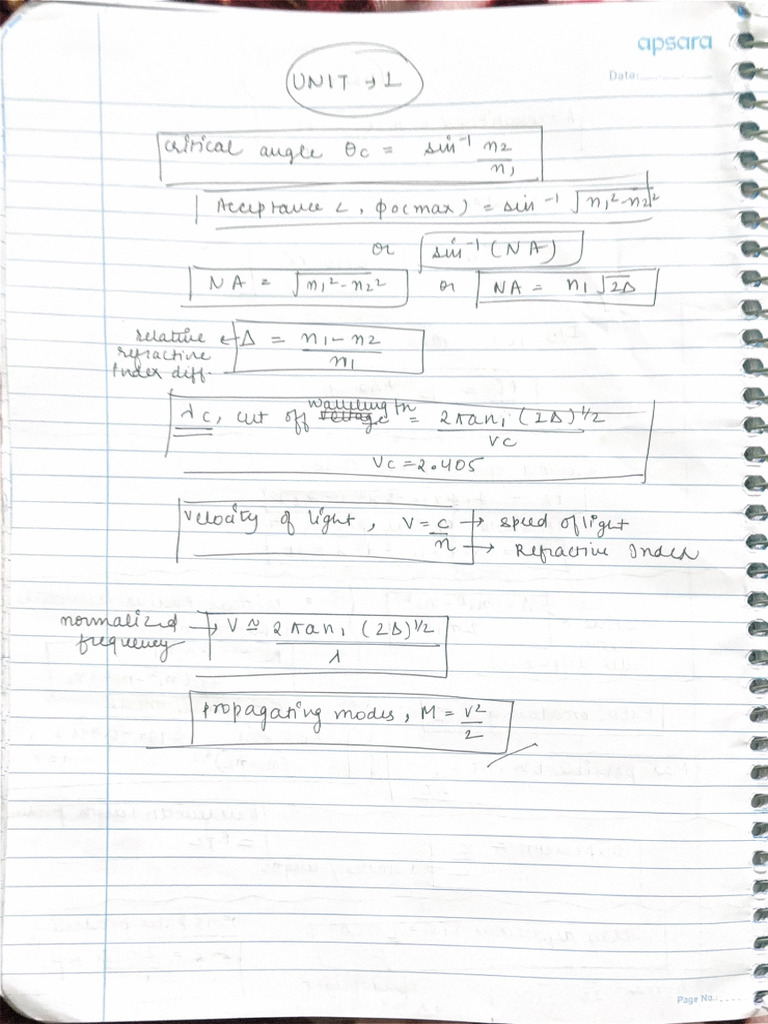 apsara
Date:
UNIT → 1
Critical angle θc = sin⁻¹ n2/n1
Acceptance ∠, φo(max) = sin⁻¹ √n1²-n2²
or sin⁻¹ (NA)
NA = √n1²-n2² or NA = n1√2Δ
relative refractive Index diff. ← Δ = n1-n2/n1
λc, cut off wavelength = 2πan1 (2Δ)^1/2 / Vc
Vc = 2.405
Velocity of light, V = c/n → speed of light
→ Refractive Index
normalized frequency → V ≃ 2πan1 (2Δ)^1/2 / λ
propagating modes, M = V²/2
Page No.: